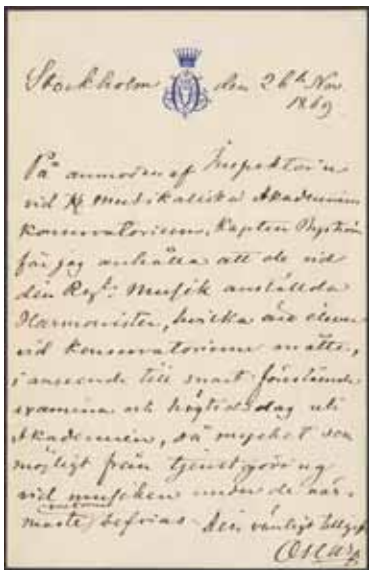 Stockholm den 26th Nov.
1869
På anmodan af Inspektor'n
vid K. Musikaliska Akademiens
konservatorium, Kapten Byström
får jag anhålla att de vid
den Reg:s Musik anställda
Harmonister, hvilka äro elever
vid Konservatorium måtte,
i anseende till snart förestående
examina och högtidsdag uti
Akademien, så mycket som
möjligt från tjenstgöring
vid musiken under de när-
maste befrias. Den vänligt
Oscar